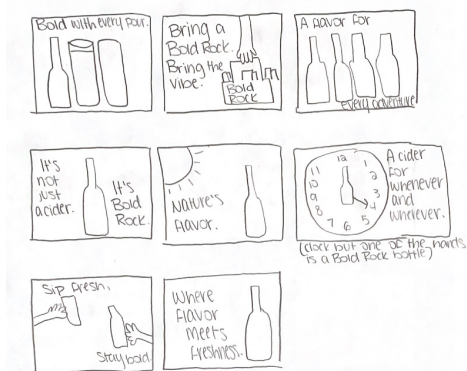 Bold with every pour.
Bring a
Bold Rock.
Bring the
vibe.
Bold
Rock
A flavor for
every adventure
It's
not
just
a cider.
It's
Bold
Rock.
Nature's
flavor.
12
1
2
3
4
5
6
7
8
9
10
11
A cider
for
whenever
and
wherever.
(clock but one of the hands
is a Bold Rock bottle)
Sip fresh,
Stay bold
Where
flavor
meets
freshness.